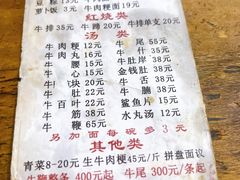 豆 粽 13元 牛肉粳面 19元
萝卜饭 3元
红烧类
牛排 35元 牛蹄 20元 牛排单支 20元
汤类
牛肉粳 12元 牛尾 55元
牛肉丸 16元 牛什 35元
牛腰 牛肚岸 38元
牛心 金钱肚 38元
牛气块 20元 牛舌 38元
牛肚 20元 牛腩 38元
牛百叶 22元 鲨鱼片 15元
牛筋 38元 水丸汤 12元
牛鞭 65元
另加面每碗多3元
其他类
青菜8-20元 生牛肉粳45元/斤 拼盘面议
牛鞭整条 400元起 牛尾 300元/条起